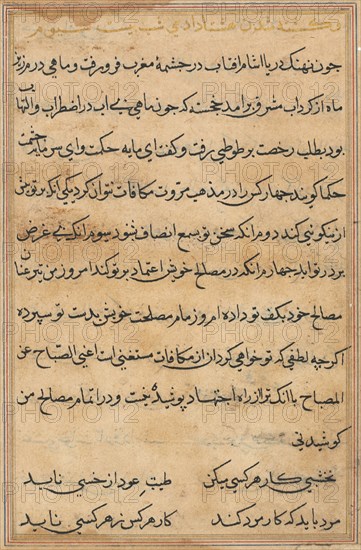 شب بیست سیوم
چون نهنک دریا اشام افتاب در چشمهٔ مغرب فرو رفت و ماهی در
ماه از کرداب مشرق برامد خجسته که چون ماهی بی اب در اضطراب و التهاب
بود بطلب رخصت بر طوطی رفت و کفت ای مایه حکمت وای سرمایه حشمت
حکما کویند چهار کس را در مذهب مروت مکافات نتوان کرد یکی انکه بر تو پیش
از نیکویی کند دوم انکه سخن تو بسمع انصاف شنود سوم انکه بی غرض
بر در تو اید چهارم انکه در مصالح خویش اعتماد بر تو کند امروز من نیز عنان
مصالح خود بکف تو داده ام و زمام مصلحت خویش بدست تو سپرده
اکرچه لطفی که تو خواهی کرد ان از مکافات مستغنی است اغنی الصباح عن
المصباح با انکه تو از راه اجتهاد پوشیدهٔ و در اتمام مصالح من
کوشیدنی
نخشبی کار هر کسی نکن طیب عود از خسی ناید
مرد باید که کار مرد کند کار هر کس ز هر کسی ناید